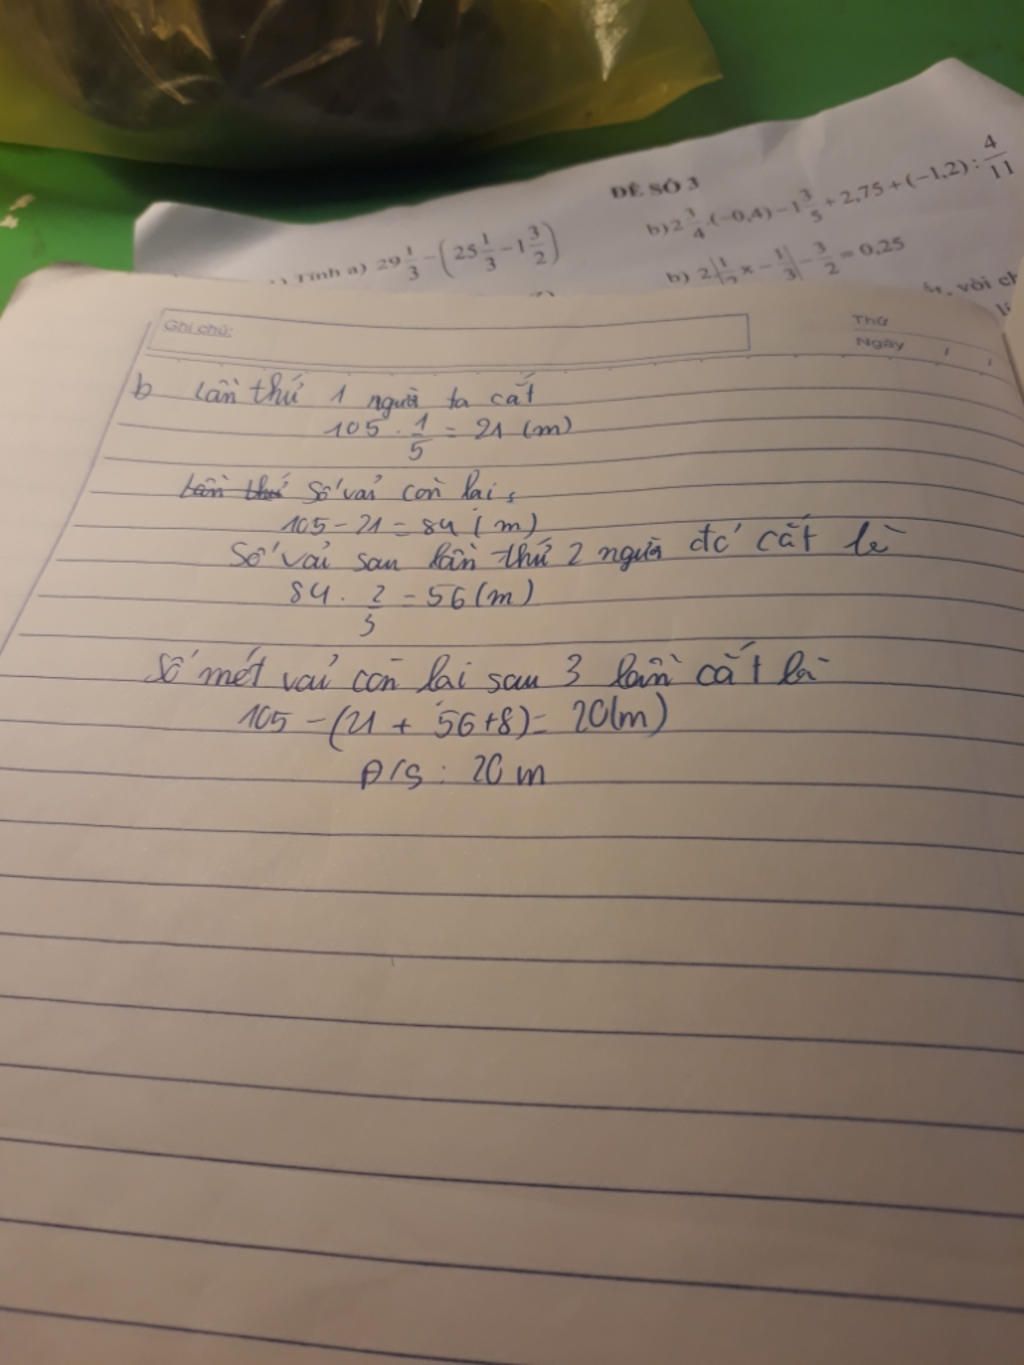 ĐỀ SỐ 3
Tính a) 29 1/3 − (25 1/3 − 1 3/2)
b) 2 3/4 .(−0,4) − 1 3/5 + 2,75 + (−1,2) : 4/11
b) 2|1/2 x − 1/3| − 3/2 = 0,25
với
Ghi chú:
Thứ
Ngày / /
b Lần thứ 1 người ta cắt
105 . 1/5 = 21 (m)
Lần thứ Số vải còn lại
105 − 21 = 84 (m)
Số vải sau lần thứ 2 người đó cắt là
84 . 2/3 = 56 (m)
Số mét vải còn lại sau 3 lần cắt là
105 − (21 + 56 + 8) = 20 (m)
Đ/S : 20 m